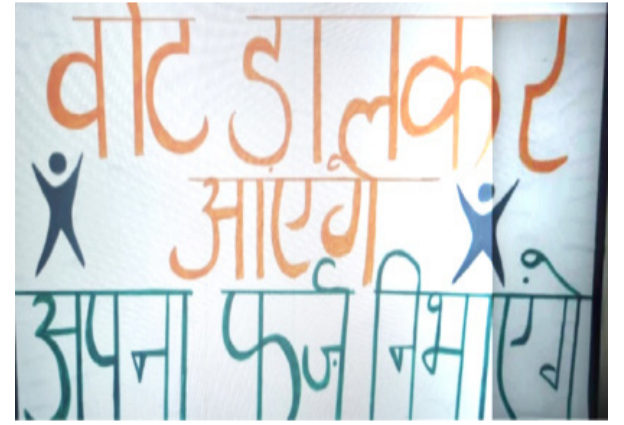 वोट डालकर
आएंगे
अपना फर्ज़ निभाएंगे